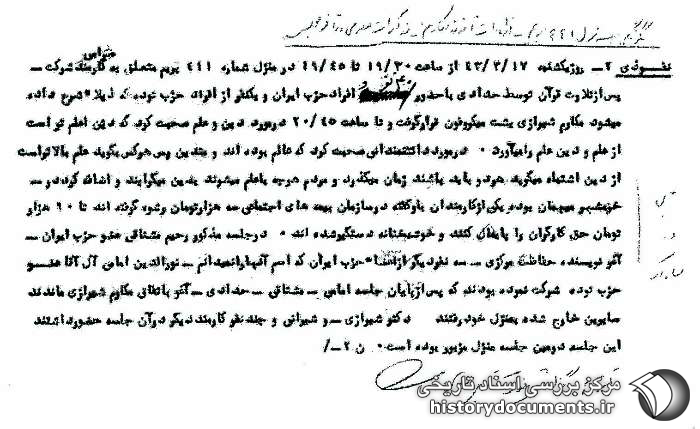 نفوذی ۲ـ روز یکشنبه ۴۳/۳/۱۷ از ساعت ۱۹/۳۰ تا ۱۹/۴۵ در منزل شماره ۴۱۱ پریم متعلق به کارمند شرکت ـ
پس از تلاوت قرآن توسط حدادی با حضور افراد حزب ایران و یکنفر از افراد حزب توده که ذیلا شرح داده
میشود مکارم شیرازی پشت میکروفون قرار گرفت و تا ساعت ۲۰/۴۵ در مورد دین و علم صحبت کرد که دین اعلم تر است
از علم و دین علم را میآورد ۰ در مورد دانشمندانی صحبت کرد که عالم بوده اند و متدین پس هر کس بگوید علم بالاتر است
از دین اشتباه میگوید هر دو باید باشند زمان میگذرد و مردم هر چه با علم میشوند بدین میگرایند و اضافه کرد در ـ
میهمان بودم یکی از کارمندان گفته در سازمان بیمه های اجتماعی سه هزار تومان رشوه گرفته اند تا ۹۰ هزار
تومان حق کارگران را پایمال کنند و خوشبختانه دستگیر شده اند ۰ در جلسه مذکور رحیم مشتاقی عضو حزب ایران ـ
آگو نویسنده حفاظت مرکزی ـ سه نفر دیگر از اعضاء حزب ایران که اسم آنها را نمیدانم ـ نورالدین امامی آل آقا عضو
حزب توده شرکت نموده بودند که پس از پایان جلسه امامی ـ مشتاقی ـ حدادی ـ آگو باتفاق مکارم شیرازی ماندند
سایرین خارج شده بمنزل خود رفتند دکتر شیرازی ـ و شیرانی و چند نفر کارمند دیگر در آن جلسه حضور داشتند
این جلسه دومین جلسه منزل مزبور بوده است ۰ ن ۲ـ/
مرکز بررسی اسناد تاریخی
historydocuments.ir